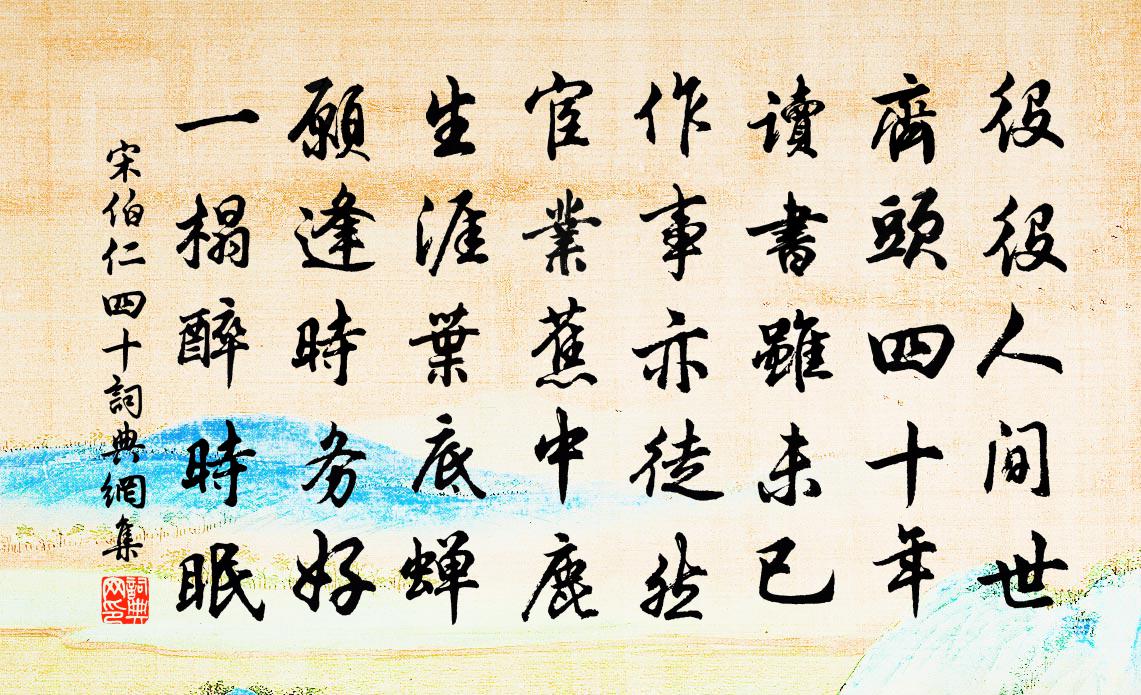 役役人间世
齊頭四十年
讀書雖未已
作事亦徒然
宦業蕉中鹿
生涯葉底蝉
願逢時务好
一榻醉時眠
宋伯仁四十詞典網集
詞典网印